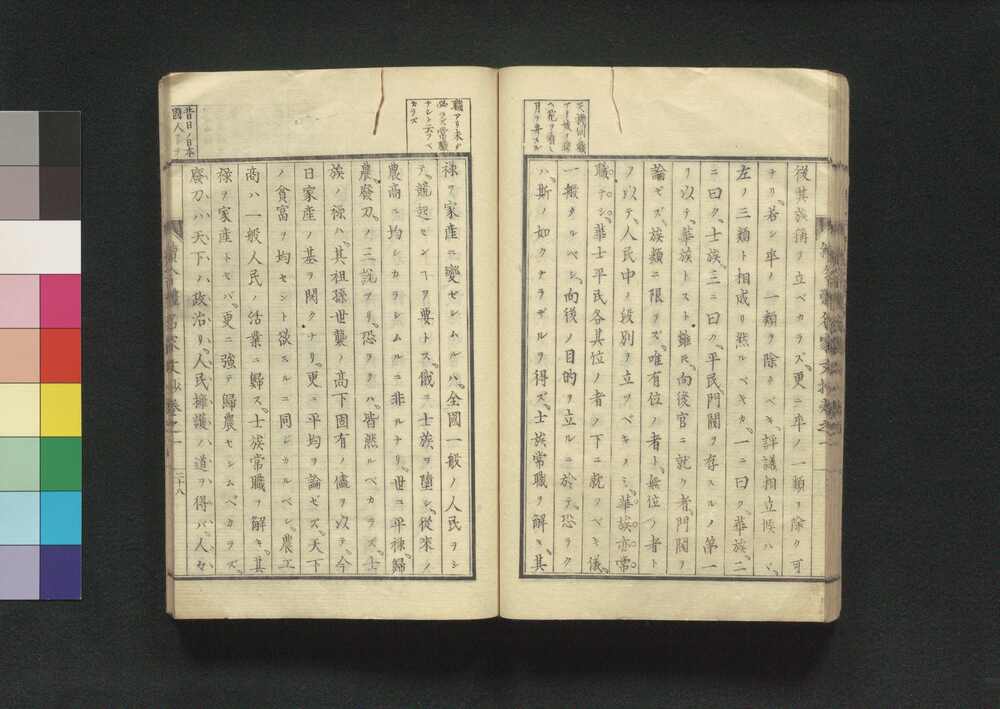 天機仙骸
月ヲ弄スル
従其族稱ヲ立ベカラズ更ニ卒ノ一類ヲ除ク可
ナリ若シ卒ノ一類ヲ除キベキ評議相立候ハヾ
左ノ三類ト相成リ然ルベキカ一ニ曰ク華族二
ニ曰ク士族三ニ曰ク平民門閥ヲ存スルノ第一
リ以テ華族トスト雖氏向後官ニ就ク者門閥ヲ
論ゼズ族類ニ限ラズ唯有位ノ者ト無位ノ者ト
ノ以テ人民中ノ級別ヲ立ツベキノミ華族亦常
職ナシ華士平民各其位ノ者ノ下ニ就クベキ儀
一般タルベシ向後ノ目的ヲ立ルニ於テ恐ラク
ハ斯ノ如クナラザルヲ得ズ士族常職ヲ解キ其
職アリ未ダ
必ラズ常職
ナシト云フベ
カラズ
禄ヲ家産ニ變ゼシムルハ全國一般ノ人民ヲシ
テ競起センヿヲ要トス儀ニ士族ヲ堕シ從來ノ
農商ニ均シカラシムルニ非ルナリ世ニ平禄歸
農廢刀ノ三説アリ恐ラクハ皆然ルベカラズ士
族ノ禄ハ其祖孫世襲ノ高下固有ノ儘ヲ以テ今
日家産ノ基ヲ開クナリ更ニ平均ヲ論ゼズ天下
ノ貧富ヲ均セント欲スルニ同ジカルベシ農工
商ハ一般人民ノ活業ニ歸ス士族常職ヲ解キ其
禄ヲ家産トセバ更ニ強テ歸農セシムベカラズ
廢刀ハ天下ハ政治リ人民擁護ハ道ヲ得バ人々
昔日ノ日本
國人
二十八